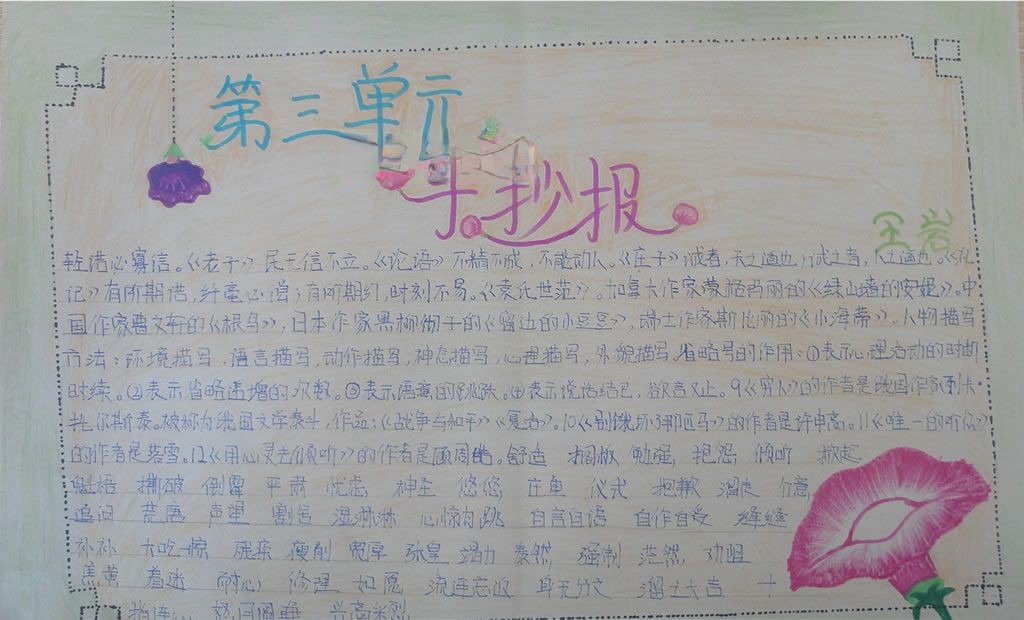 第三单元
手抄报
王岩
轻诺必寡信。《老子》民无信不立。《论语》不精不诚，不能动人。《庄子》诚者，天之道也；诚之者，人之道也。《礼
记》有所期诺，纤毫必偿；有所期约，时刻不易。《袁氏世范》。加拿大作家蒙格玛丽的《绿山墙的安妮》。中
国作家曹文轩的《根鸟》，日本作家黑柳彻子的《窗边的小豆豆》，瑞士作家斯比丽的《小海蒂》。人物描写
方法：环境描写，语言描写，动作描写，神态描写，心理描写，外貌描写。省略号的作用：①表示心理活动的时断
时续。②表示省略递增的次数。③表示语意的跳跃。④表示说话结巴，欲言又止。9《穷人》的作者是俄国作家列夫·
托尔斯泰。被称为俄国文学泰斗，作品：《战争与和平》《复活》。10《别饿坏了那匹马》的作者是许申高。11《唯一的听众》
的作者是落雪。12《用心灵去倾听》的作者是 舒适 搁板 勉强 抱怨 倾听 掀起
魁梧 撕破 倒霉 平肃 忧虑 神圣 悠悠 庄重 仪式 抱歉 溜走
追问 荒唐 声望 割舍 湿淋淋 心惊肉跳 自言自语 自作自受 缝缝
补补 大吃一惊 瘦削 宽厚 张皇 竭力 泰然 强制 茫然 劝阻
焦黄 着迷 耐心 修理 如愿 流连忘返 身无分文 溜之大吉 十
指连心 兴高采烈